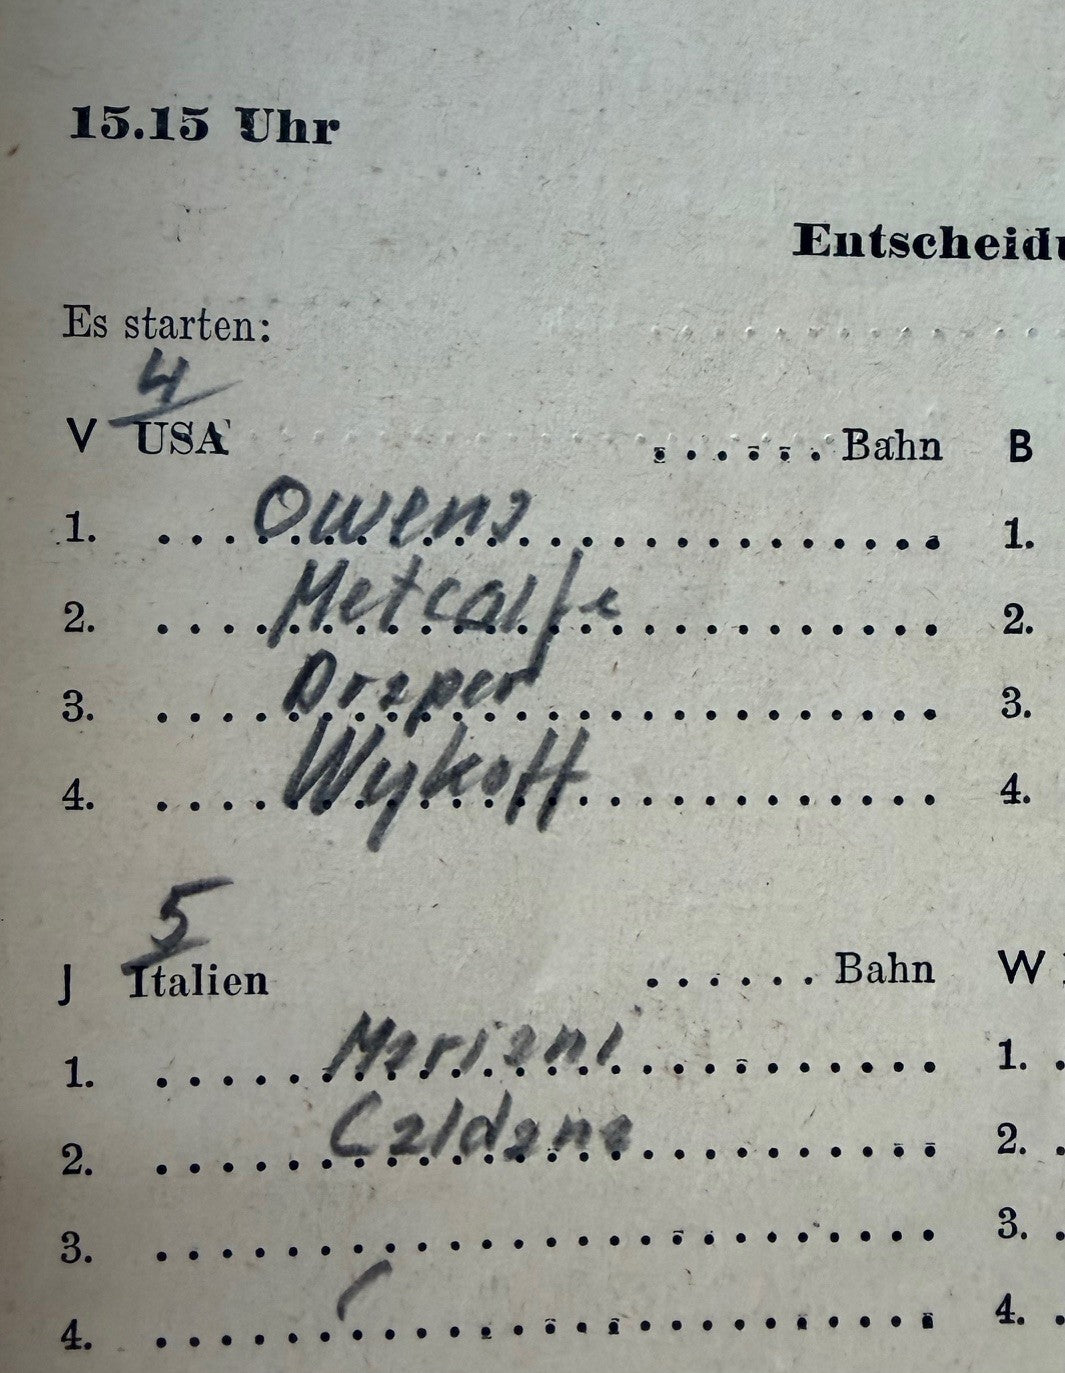 15.15 Uhr
Entscheidu
Es starten:
4
V USA ...... Bahn B
1. Owens 1.
2. Metcalfe 2.
3. Draper 3.
4. Wykoff 4.
5
J Italien ...... Bahn W
1. Mariani 1.
2. Caldana 2.
3. 3.
4. 4.